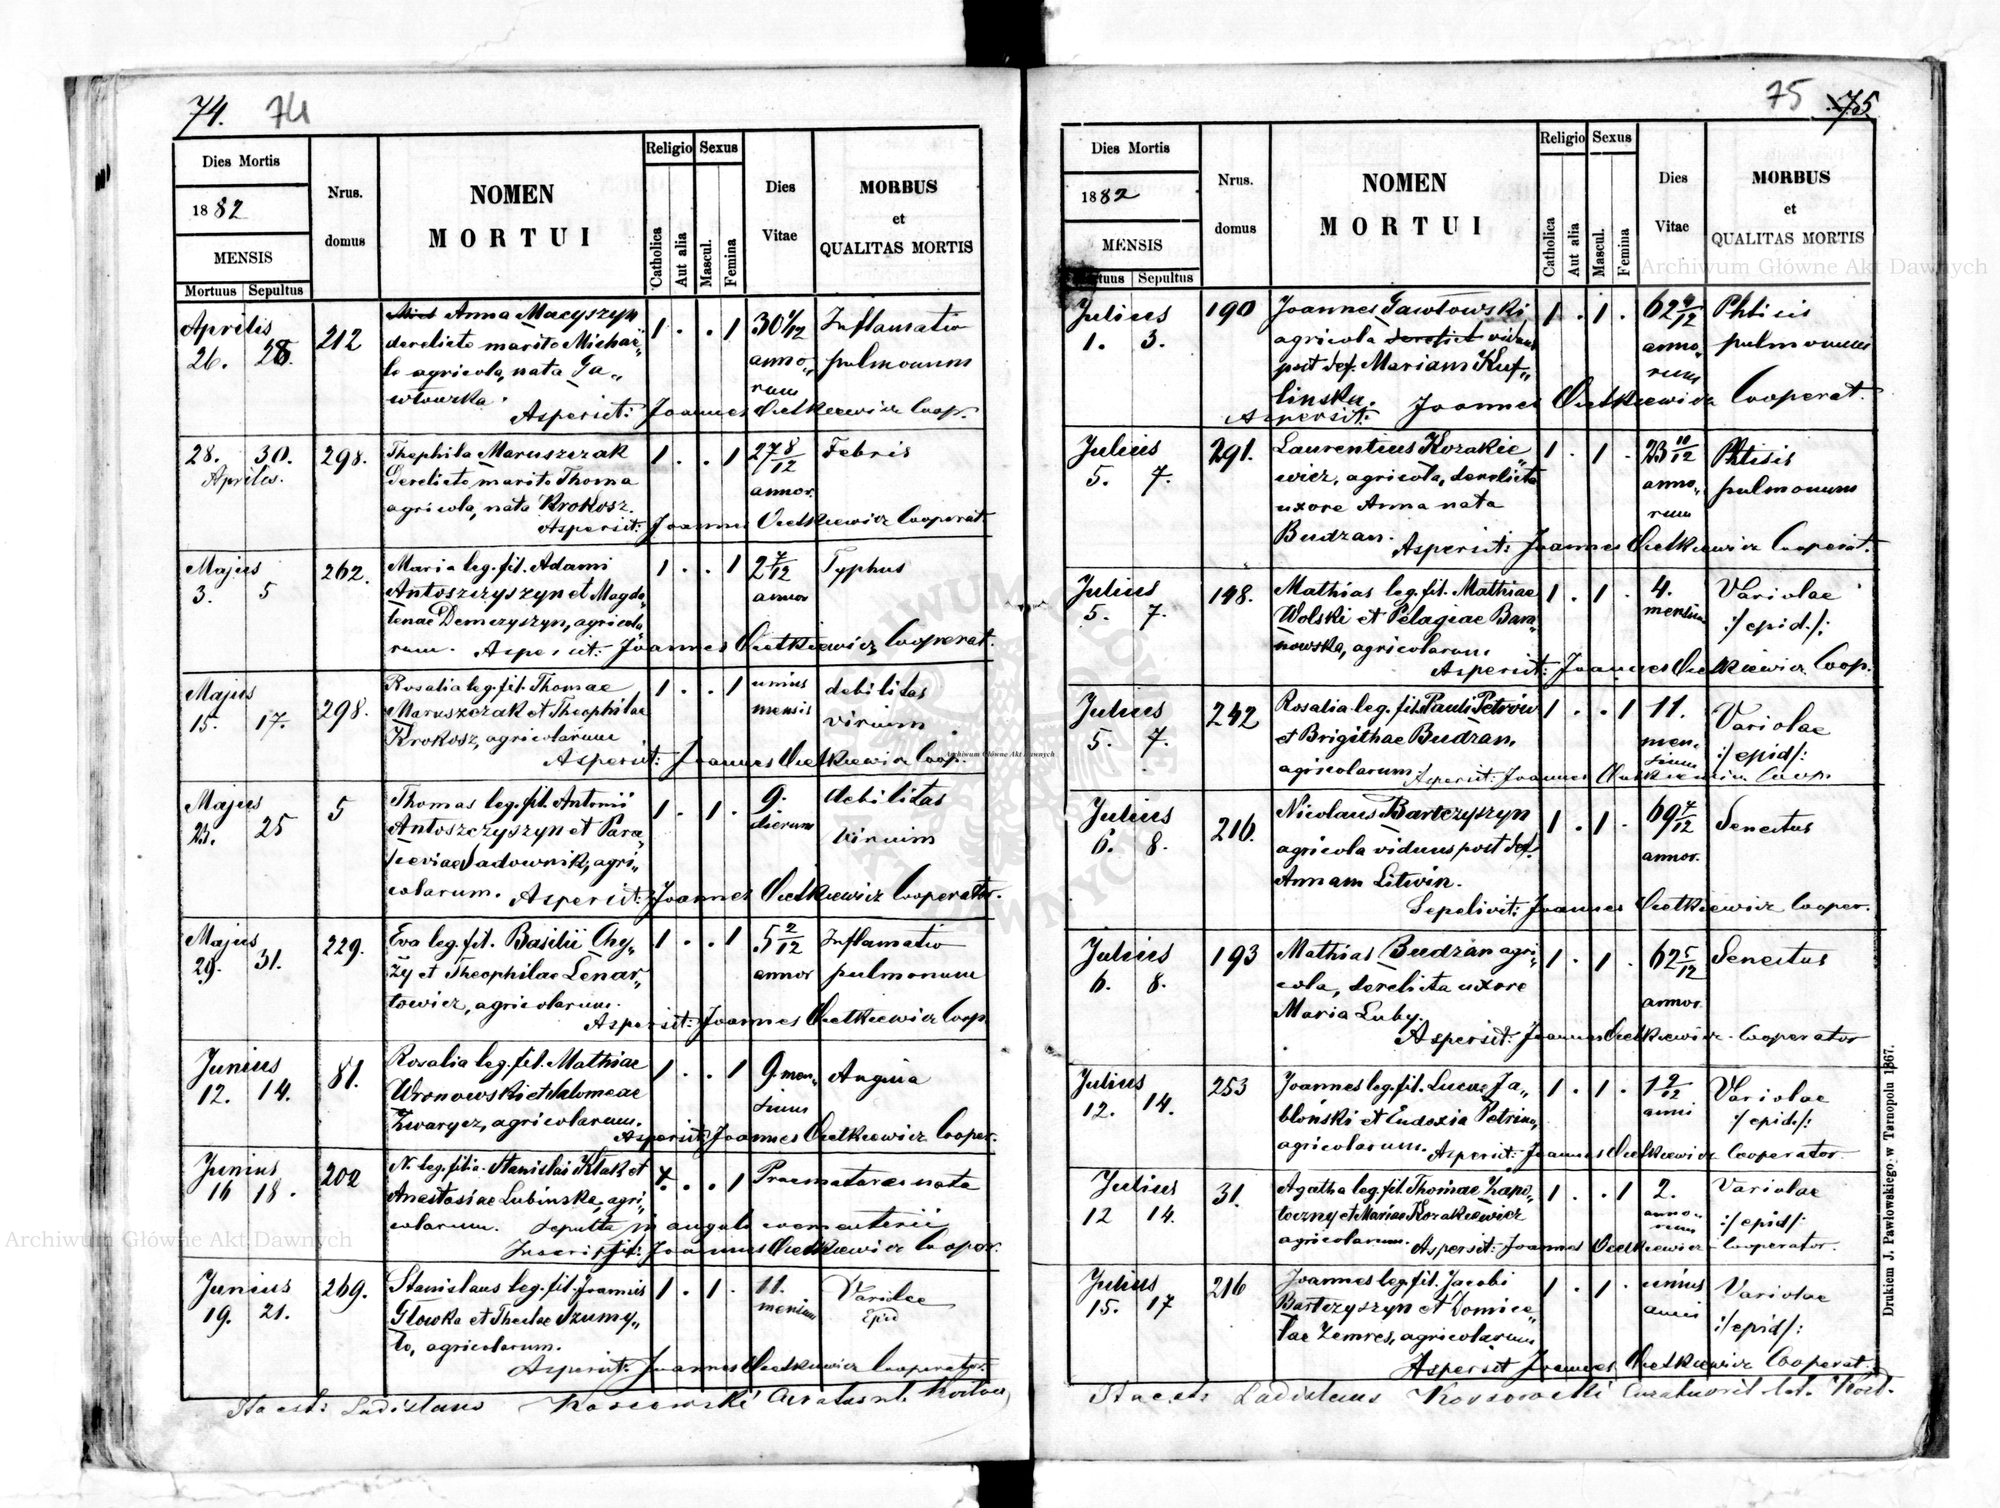 74. 74
Dies Mortis
1882
MENSIS
Mortuus Sepultus
Nrus. domus
NOMEN
MORTUI
Religio
Catholica
Aut alia
Sexus
Mascul.
Femina
Dies
Vitae
MORBUS
et
QUALITAS MORTIS
Aprilis 212 Anna Macyszyn 1 . . 1 30 1/12 Inflamatio
26. 28. derelicto marito Michaë„ anno„ pulmonum
le agricola, nata Ga„ rum
włowska.
Aspersit: Joannes Coop.
28. 30. 298. Theophila Maruszczak 1 . . 1 27 8/12 Febris
Aprilis. derelicto marito Thoma annor.
agricola, nata Krokosz.
Aspersit: Joannes Cooperat.
Majus 262. Maria leg. fil. Adami 1 . . 1 2 7/12 Typhus
3. 5 Antoszczyszyn et Magda„ annor
lenae Demczyszyn, agricola„
rum. Aspersit: Joannes Cooperat.
Majus 298. Rosalia leg. fil. Thomae 1 . . 1 unius debilitas
15. 17. Maruszczak et Theophilae mensis virium
Krokosz, agricolarum
Aspersit: Joannes Coop.
Majus 5 Thomas leg. fil. Antonii 1 . 1 . 9. debilitas
23. 25 Antoszczyszyn et Para„ dierum virium
sceviae Sadownik, agri„
colarum. Aspersit: Joannes Cooperator.
Majus 229. Eva leg. fil. Basilii Chy„ 1 . . 1 5 2/12 Inflamatio
29. 31. ży et Theophilae Lenar„ annor pulmonum
towicz, agricolarum.
Aspersit: Joannes Coop.
Junius 81. Rosalia leg. fil. Mathiae 1 . . 1 9. men„ Angina
12. 14. Wronowski et Salomeae sium
Zwarycz, agricolarum.
Aspersit: Joannes Cooper.
Junius 202 N. leg. filia. Stanislai Kłak et . . 1 Praemature nata
16 18. Anastasiae Lubinska, agri„
colarum. Sepulta in angulo coementerii
Inscripsit: Joannes Cooper.
Junius 269. Stanislaus leg. fil. Joannis 1 . 1 . 11. Variolae
19. 21. Głowka et Theclae Szumy„ mensium Epid
ło, agricolarum.
Aspersit: Joannes Cooperator.
Ita est: Ladislaus Kossowski
75 75
Dies Mortis
1882
MENSIS
Mortuus Sepultus
Nrus.
domus
NOMEN
MORTUI
Religio
Catholica
Aut alia
Sexus
Mascul.
Femina
Dies
Vitae
MORBUS
et
QUALITAS MORTIS
Julius 190 Joannes Gawłowski 1 . 1 . Phtisis
1. 3. agricola viduus anno„ pulmonum
post def. Mariam Kuf„ rum
linska.
Aspersit: Joannes Cooperat.
Julius 291. Laurentius Kozakie„ 1 . 1 . 23 10/12 Phtisis
5. 7. wicz, agricola, derelicta anno„ pulmonum
uxore Anna nata rum
Budzan. Aspersit: Joannes Cooperat.
Julius 148. Mathias leg. fil. Mathiae 1 . 1 . 4. Variolae
5. 7. Wolski et Pelagiae Bara„ mensium :/epid./:
nowska, agricolarum
Aspersit: Joannes Coop.
Julius 242 Rosalia leg. fil. Pauli Petrów 1 . . 1 11. Variolae
5. 7. et Brigithae Budzan, men„ :/epid/:
agricolarum. Aspersit: Joannes sium Coop.
Julius 216. Nicolaus Bartczyszyn 1 . 1 . 69 7/12 Senectus
6. 8. agricola viduus post def. annor.
Annam Litwin.
Sepelivit: Joannes Cooper.
Julius 193 Mathias Budzan agri„ 1 . 1 . 62 5/12 Senectus
6. 8. cola, derelicta uxore annor.
Maria Luby.
Aspersit: Joannes Cooperator
Julius 253 Joannes leg. fil. Lucae Ja„ 1 . 1 . Variolae
12. 14. błoński et Eudoxia Petrina, anni :/epid./:
agricolarum. Aspersit: Joannes Cooperator.
Julius 31. Agatha leg. fil. Thomae Zapo„ 1 . . 1 2. Variolae
12 14. toczny et Mariae Kozakiewicz anno„ rum :/epid/:
agricolarum. Aspersit: Joannes Cooperator.
Julius 216 Joannes leg. fil. Jacobi 1 . 1 . unius Variolae
15. 17 Bartczyszyn et Domice„ anni :/epid/:
lae Zemres, agricolarum
Aspersit Joannes Cooperat.
Ita est: Ladislaus Kossowski
Drukiem J. Pawłowskiego w Tarnopolu 1867.
Archiwum Główne Akt Dawnych
Archiwum Główne Akt Dawnych
Archiwum Główne Akt Dawnych
ARCHIWUM GŁÓWNE AKT DAWNYCH